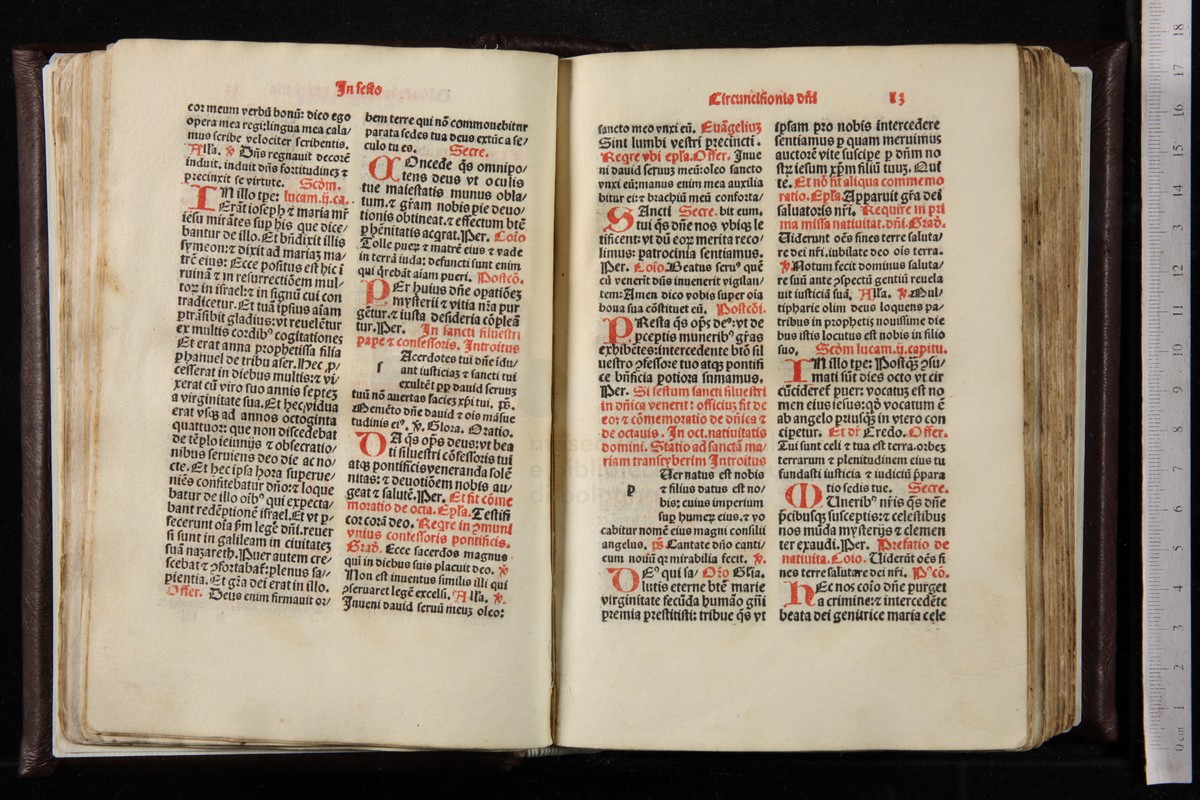 In festo
cor meum verbū bonū: dico ego
opera mea regi:lingua mea cala/
mus scribe velociter scribentis.
Alla. ℣ Dn̄s regnauit decorē
induit. induit dn̄s fortitudinez ⁊
precinxit se virtute. Scd̄m.
IN illo tp̄e: lucam.ij.ca.
Erāt ioseph ⁊ maria mr̄
iesu mirātes sup his que dice/
bantur de illo. Et bn̄dixit illis
symeon:⁊ dixit ad mariaz ma/
trē eius: Ecce positus est hic ī
ruinā ⁊ in resurrectiōem mul-
tor in israel:⁊ in signū cui con
tradicetur. Et tuā ipsius aīam
ptrāsibit gladius: vt reuelētur
ex multis cordibꝰ cogitationes
Et erat anna prophetissa filia
phanuel de tribu aser. Hec p/
cesserat in diebus multis:⁊ vi/
xerat cū viro suo annis septez
a virginitate sua. Et hec vidua
erat vsqꝫ ad annos octoginta
quattuor: que non discedebat
de tēplo ieiunijs ⁊ obsecratio/
nibus seruiens deo die ac no/
cte. Et hec ipsa hora superue/
niēs confitebatur dn̄o:⁊ loque
batur de illo oībꝰ qui expecta/
bant redēptionē israel. Et vt p/
fecerunt oīa ꝑm legē dn̄i. reuer
si sunt in galileam in ciuitatez
suā nazareth. Puer autem cre/
scebat ⁊ ꝯfortabat:plenus sa/
pientia. Et gr̄a dei erat in illo.
Offer. Deus enim firmauit or/
bem terre qui nō commouebitur
parata sedes tua deus extūc a se/
culo tu es. Secre.
COncede q̄s omnipo/
tens deus vt oculis
tue maiestatis munus obla/
tum.⁊ gr̄am nobis pie deuo/
tionis obtineat.⁊ effectum btē
phēnitatis acqrat. Per. Coīo
Tolle puez ⁊ matrē eius ⁊ vade
in terrā iuda: defuncti sunt enim
qui q̄rebāt aīam pueri. Postcō.
PEr huius dn̄e opatiōez
mysterij ⁊ vitia nr̄a pur
gētur.⁊ iusta desideria cōpleā
tur. Per. In sancti siluestri
pape ⁊ confessoris. Introitus
s Acerdotes tui dn̄e idu/
ant iusticiaz ⁊ sancti tui
exultēt pp dauid seruuz
tuū nō auertas faciez xp̄i tui. p̄s.
Memēto dn̄e dauid ⁊ oīs māsue
tudinis eiꝰ. ℣. Glora. Oratio.
DA q̄s op̄s deus: vt bea
ti siluestri cōfessoris tui
atqꝫ pontificis veneranda solē
nitas:⁊ deuotiōem nobis au/
geat ⁊ salutē. Per. Et fit cōme
moratio de octa. Ep̄la. Testifi
cor corā deo. Reqre in ꝯmuni
vnius confessoris pontificis.
Grad. Ecce sacerdos magnus
qui in diebus suis placuit deo. ℣
Non est inuentus similis illi qui
ꝯseruaret legē excelsi. Alla. ℣.
Inueni dauid seruū meuz oleo:
Circuncisionis dn̄i 13
sancto meo vnxi eū. Euāgeliuz
Sint lumbi vestri precincti.
Reqre vbi ep̄la. Offer. Inue
ni dauid seruuz meū:oleo sancto
vnxi eū:manus enim mea auxilia
bitur ei:⁊ brachiū meū conforta/
SAncti Secre. bit eum.
tui q̄s dn̄e nos vbiqꝫ le
tificent: vt dū eoꝝ merita reco/
limus: patrocinia sentiamus.
Per. Coīo. Beatus seruꝰ quē
cū venerit dn̄s inuenerit vigilan/
tem: Amen dico vobis super oīa
bona sua cōstituet eū. Postcōi.
PResta q̄s op̄s deꝰ: vt de
pceptis muneribꝰ gr̄as
exhibētes: intercedente btō sil
uestro ꝯfessore tuo atqꝫ pontifi
ce bn̄ficia potiora sumamus.
Per. Si festum sancti siluestri
in dn̄ica venerit: officiuz fit de
eo: ⁊ cōmemoratio de dn̄ica ⁊
de octauis. In oct. natiuitatis
domini. Statio ad sanctā ma/
riam transtyberim Introitus
p Uer natus est nobis
⁊ filius datus est no/
bis: cuius imperium
sup humeꝝ eius. ⁊ vo
cabitur nomē eius magni consilii
angelus. p̄s Cantate dn̄o canti/
cum nouū qꝛ mirabilia fecit. ℣.
DEꝰ qui sa/ Orō Gl̄ia.
lutis eterne btē marie
virginitate secūda humāo gn̄i
premia prestitisti: tribue q̄s vt
ipsam pro nobis intercedere
sentiamus p quam meruimus
auctorē vite suscipe p dn̄m no
stꝝ iesum xp̄m filiū tuuz. Qui
te. Et nō fit aliqua commemo
ratio. Ep̄la. Apparuit gr̄a dei
saluatoris nr̄i. Require in pri
ma missa natiuitat. dn̄i. Grad.
Uiderunt oēs fines terre saluta/
re dei nr̄i. iubilate deo oīs terra.
℣ Notum fecit dominus saluta/
re suū ante ꝯspectū gentiū reuela
uit iusticiā suā. Alla. ℣ Mul/
tipharie olim deus loquens pa/
tribus in prophetis nouissime die
bus istis locutus est nobis in filio
suo. Scd̄m lucam.ij.capitu.
IN illo tp̄e: Postqꝫ ꝯsu/
mati sūt dies octo vt cir
cūcideret puer: vocatuz est no
men eius iesus: qd̄ vocatum ē
ab angelo priusqꝫ in vtero con
cipetur. Et dr̄ Credo. Offer.
Tui sunt celi ⁊ tua est terra. orbez
terrarum ⁊ plenitudinem eius tu
fundasti iusticia ⁊ iudiciū p̄para
MUneribꝰ nr̄is q̄s dn̄e tio sedis tue. Secre.
p̄cibusqꝫ susceptis:⁊ celestibus
nos mūda mysterijs ⁊ clemen
ter exaudi. Per. Prefatio de
natiuita. Coīo. Uiderūt oēs fi
nes terre salutare dei nr̄i. Pꝰcō.
HEc nos coīo dn̄e purget
a crimine:⁊ intercedēte
beata dei genitrice maria cele